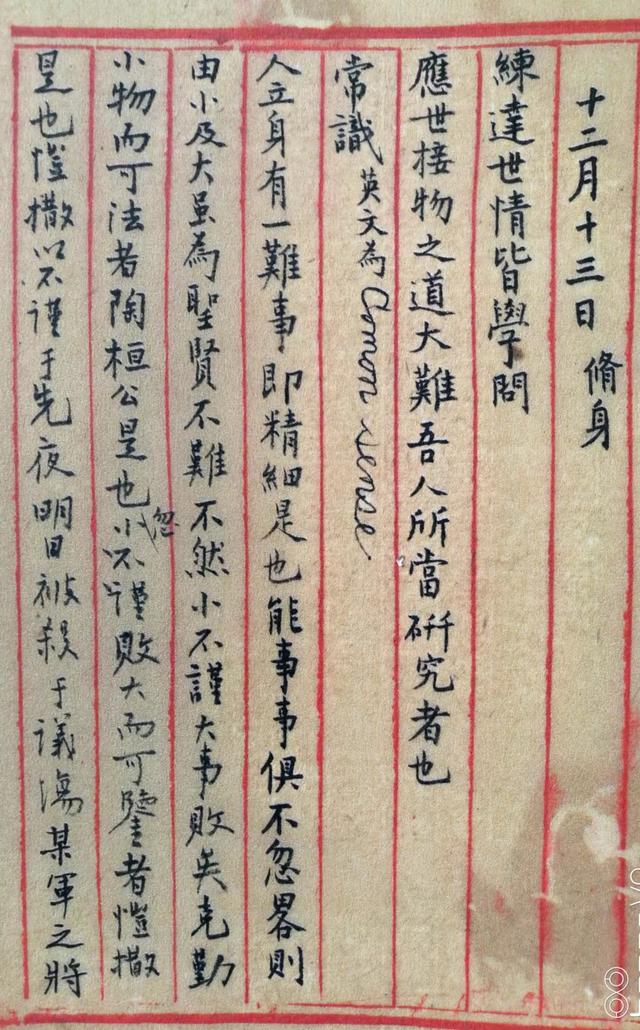 十二月十三日 脩身
練達世情皆學問
應世接物之道大難吾人所當硏究者也
常識 英文為 Comon sense.
人立身有一難事即精細是也能事事俱不忽畧則
由小及大虽為聖賢不難不然小不謹大事敗矣克勤
小物而可法者陶桓公是也忽小不謹敗大而可鑒者愷撒
是也愷撒以不謹于先夜明日被殺于議塲某軍之將